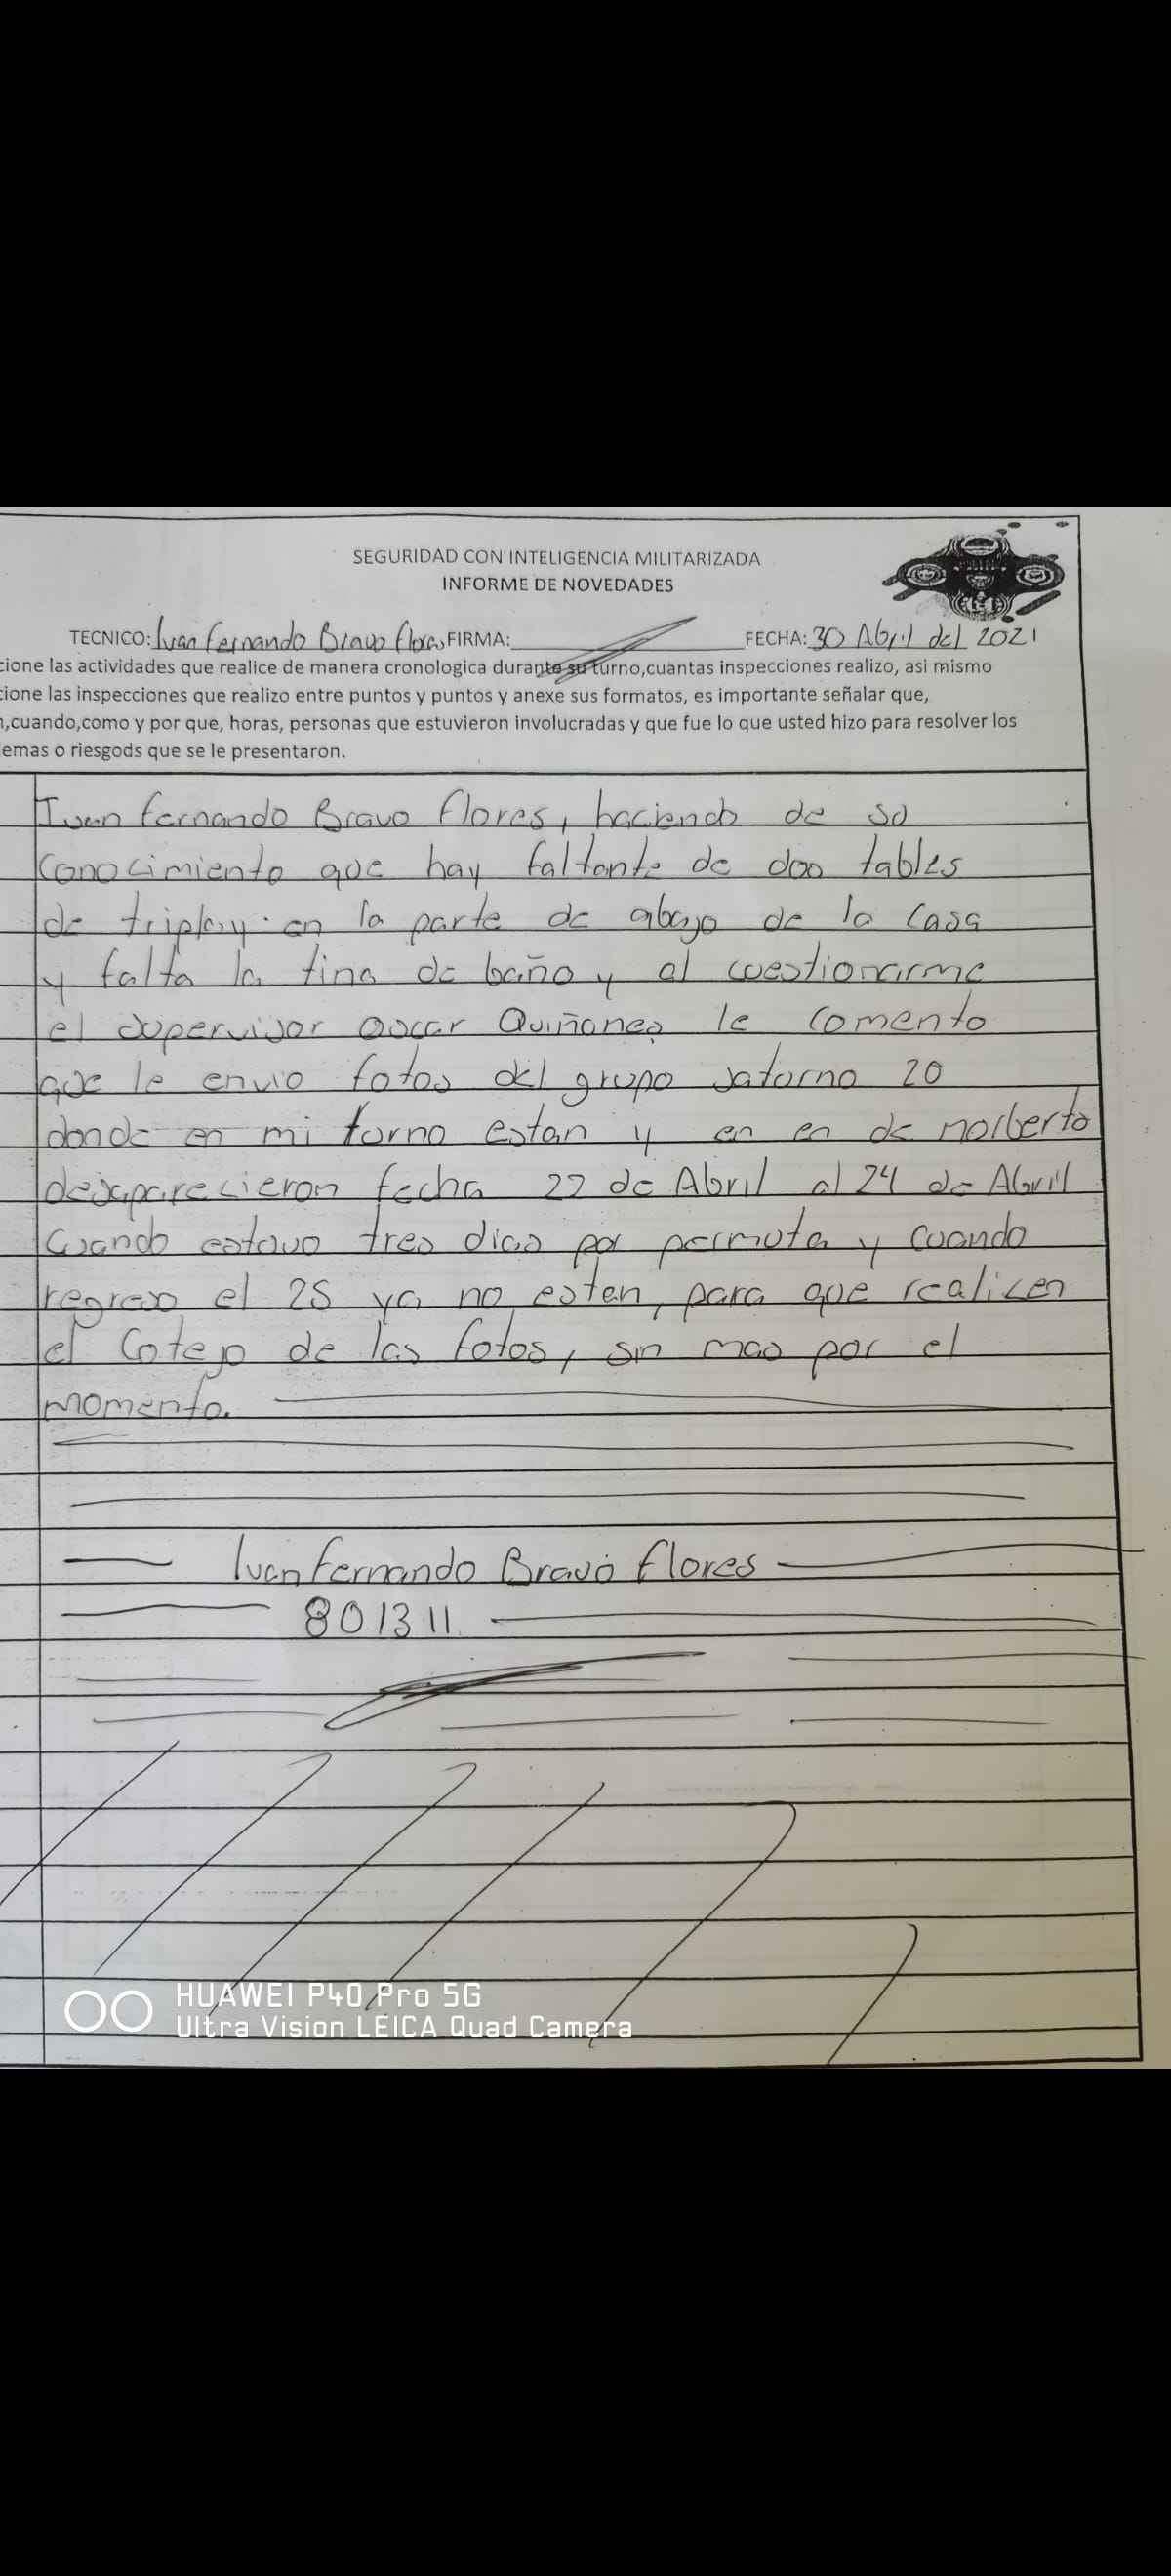 SEGURIDAD CON INTELIGENCIA MILITARIZADA
INFORME DE NOVEDADES
TECNICO: Ivan Fernando Bravo Flores FIRMA: FECHA: 30 Abril del 2021
cione las actividades que realice de manera cronologica durante su turno,cuantas inspecciones realizo, asi mismo
cione las inspecciones que realizo entre puntos y puntos y anexe sus formatos, es importante señalar que,
n,cuando,como y por que, horas, personas que estuvieron involucradas y que fue lo que usted hizo para resolver los
emas o riesgods que se le presentaron.
Ivan Fernando Bravo Flores, haciendo de su
conocimiento que hay faltante de dos tables
de triplay en la parte de abajo de la casa
y falta la tina de baño y al cuestionarme
el supervisor Oscar Quiñones le comento
que le envio fotos del grupo saturno 20
donde en mi turno estan y en en de norberto
desaparecieron fecha 22 de Abril al 24 de Abril
cuando estuvo tres dias por permuta y cuando
regreso el 25 ya no estan, para que realicen
el cotejo de las fotos, sin mas por el
momento.
Ivan Fernando Bravo Flores
801311
HUAWEI P40 Pro 5G
Ultra Vision LEICA Quad Camera